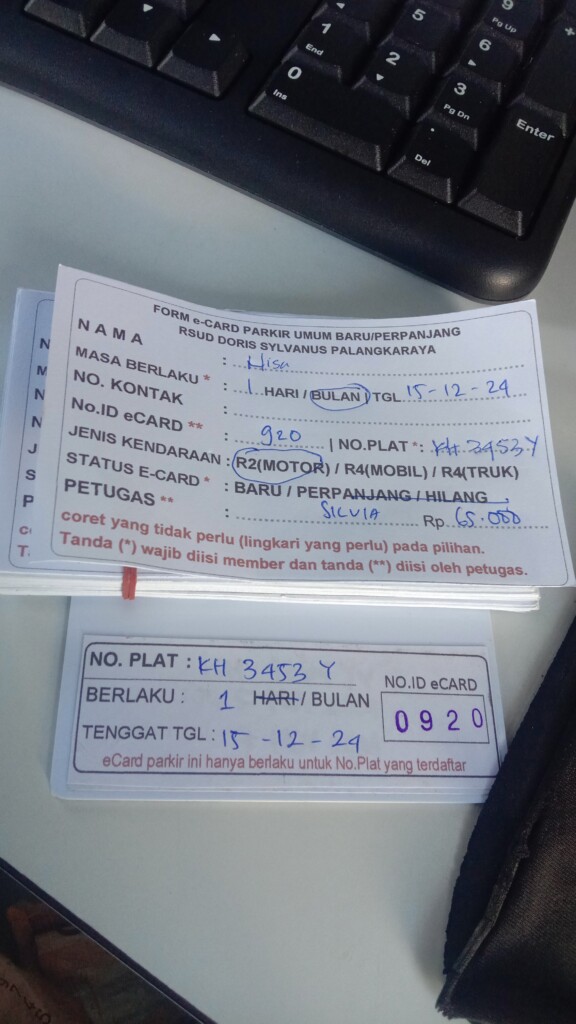 5
9
Pg Up
+
1
End
2
6
0
Ins
3
Pg Dn
.
Del
Enter
FORM e-CARD PARKIR UMUM BARU/PERPANJANG
RSUD DORIS SYLVANUS PALANGKARAYA
NAMA : Hisn
MASA BERLAKU * : 1 HARI / BULAN / TGL 15-12-24
NO. KONTAK :
No.ID eCARD ** : 920 | NO.PLAT *: KH 3453 Y
JENIS KENDARAAN : R2(MOTOR) / R4(MOBIL) / R4(TRUK)
STATUS E-CARD * : BARU / PERPANJANG / HILANG
PETUGAS ** : SILVIA Rp. 65.000
coret yang tidak perlu (lingkari yang perlu) pada pilihan.
Tanda (*) wajib diisi member dan tanda (**) diisi oleh petugas.
NO. PLAT : KH 3453 Y
BERLAKU : 1 HARI / BULAN
TENGGAT TGL : 15-12-24
NO.ID eCARD
0920
eCard parkir ini hanya berlaku untuk No.Plat yang terdaftar